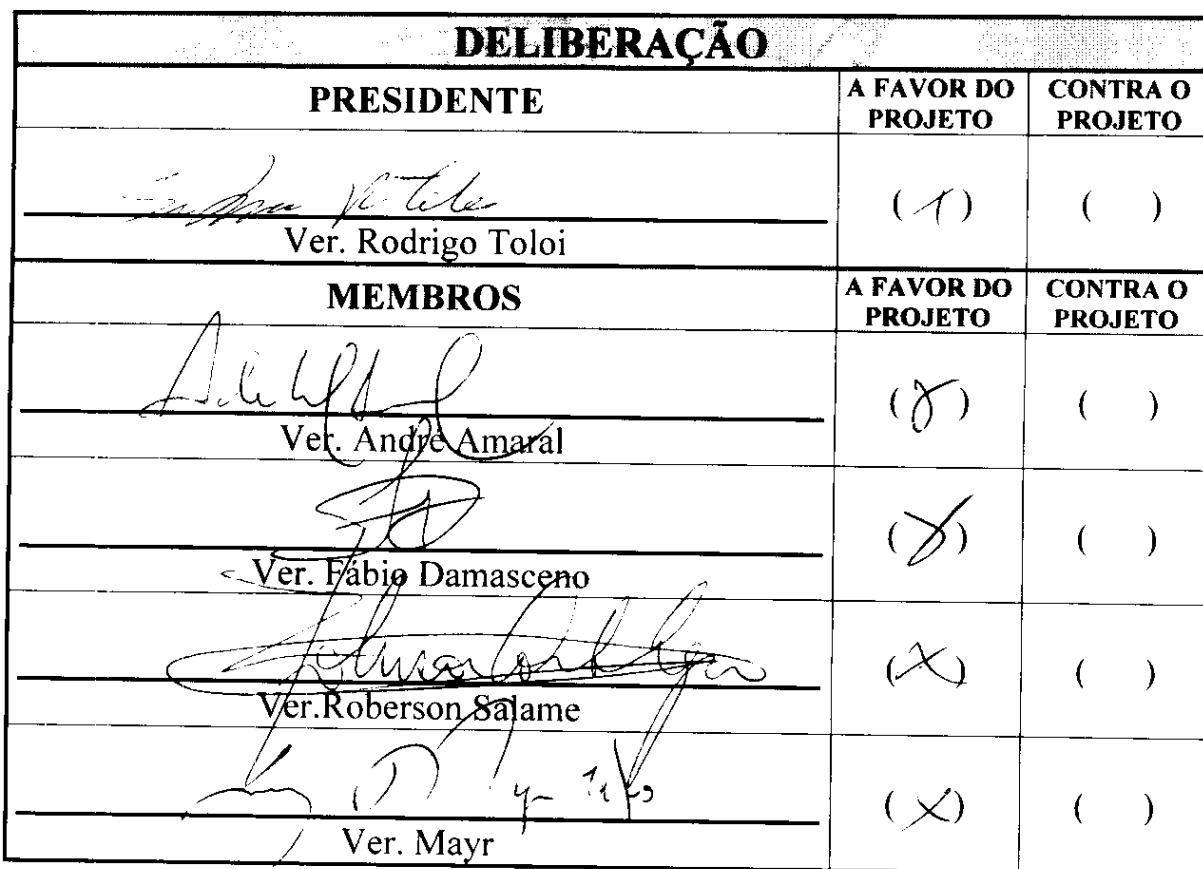 DELIBERAÇÃO
PRESIDENTE
A FAVOR DO PROJETO
CONTRA O PROJETO
Ver. Rodrigo Toloi
( )
MEMBROS
A FAVOR DO PROJETO
CONTRA O PROJETO
Ver. André Amaral
( )
Ver. Fábio Damasceno
( )
Ver.Roberson Salame
(X)
( )
Ver. Mayr
(X)
( )